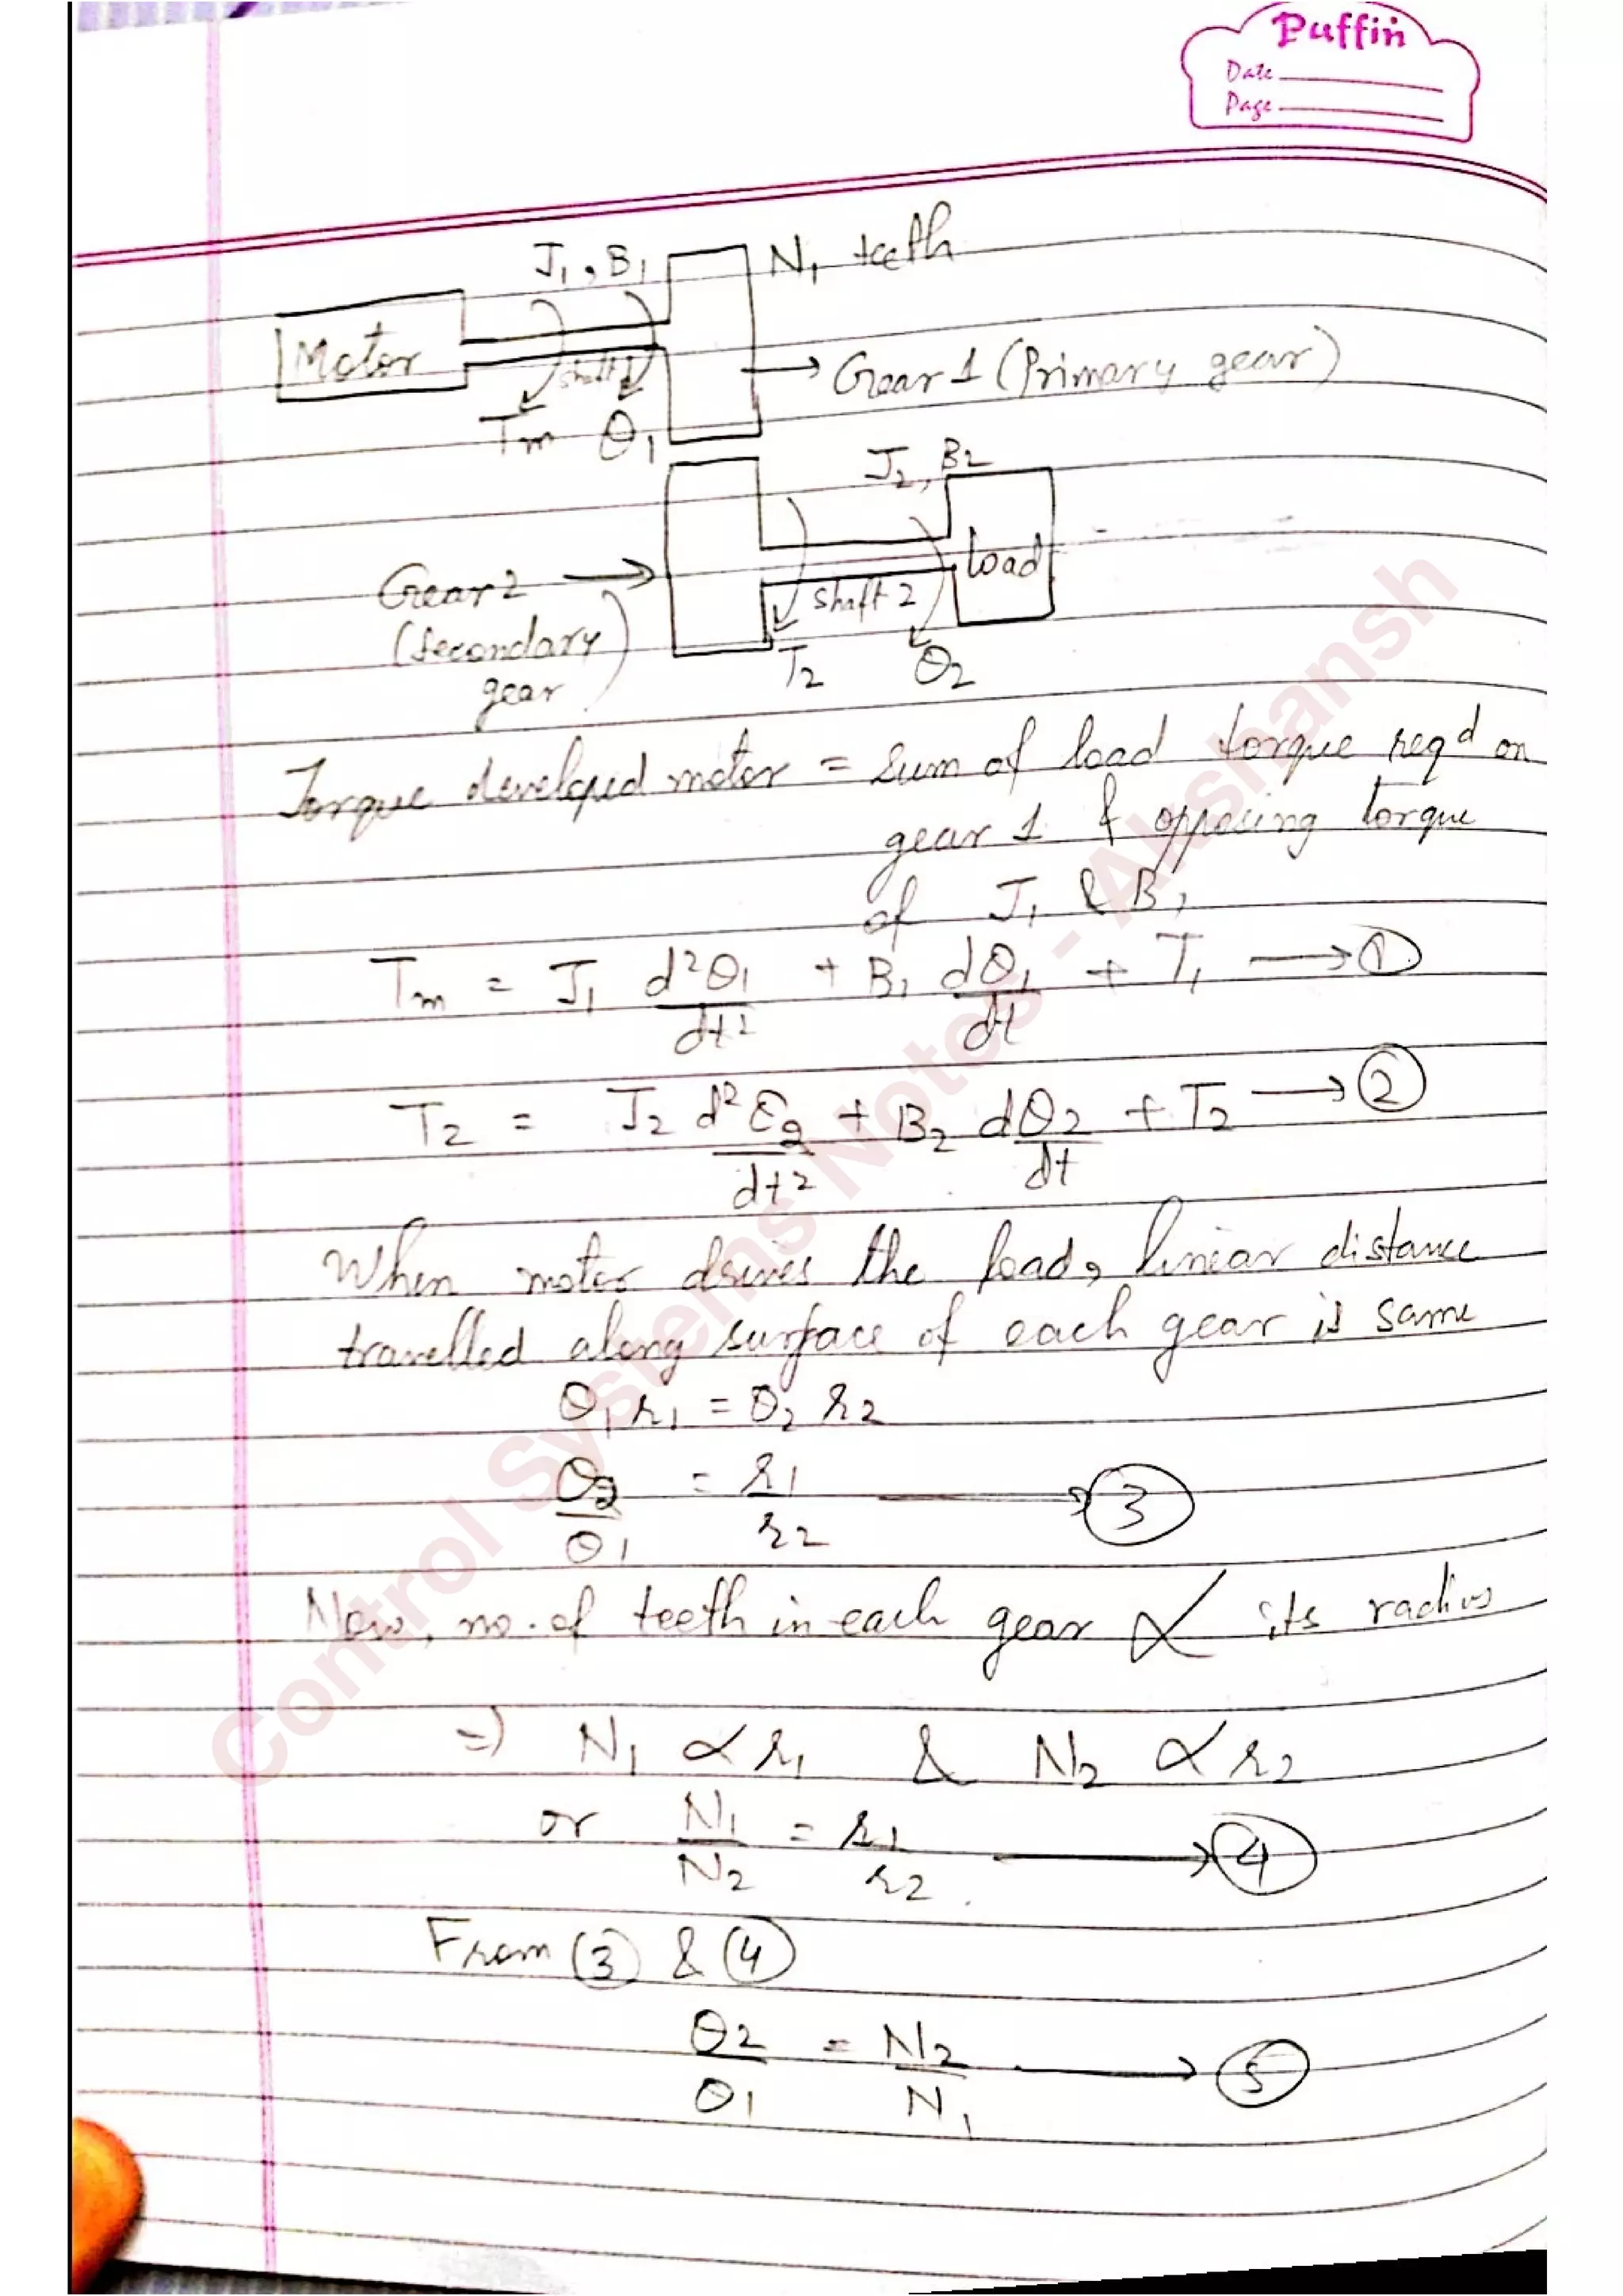 Puffin
Date
Page
J₁, B₁
N₁ teeth
Motor
shaft 1
Tm θ₁
Gear 1 (Primary gear)
J₂, B₂
Gear 2
(Secondary
gear)
shaft 2
load
T₂ θ₂
Torque developed motor = sum of load torque reqd on
gear 1 & opposing torque
of J₁ & B₁
Tm = J₁ d²θ₁/dt² + B₁ dθ₁/dt + T₁ → ①
T₂ = J₂ d²θ₂/dt² + B₂ dθ₂/dt + T₂ → ②
When motor drives the load, linear distance
travelled along surface of each gear is same
θ₁r₁ = θ₂r₂
θ₂/θ₁ = r₁/r₂ → ③
Now, no. of teeth in each gear ∝ its radius
=) N₁ ∝ r₁ & N₂ ∝ r₂
or N₁/N₂ = r₁/r₂ → ④
From ③ & ④
θ₂/θ₁ = N₂/N₁ → ⑤
Control Systems Notes - Akshansh